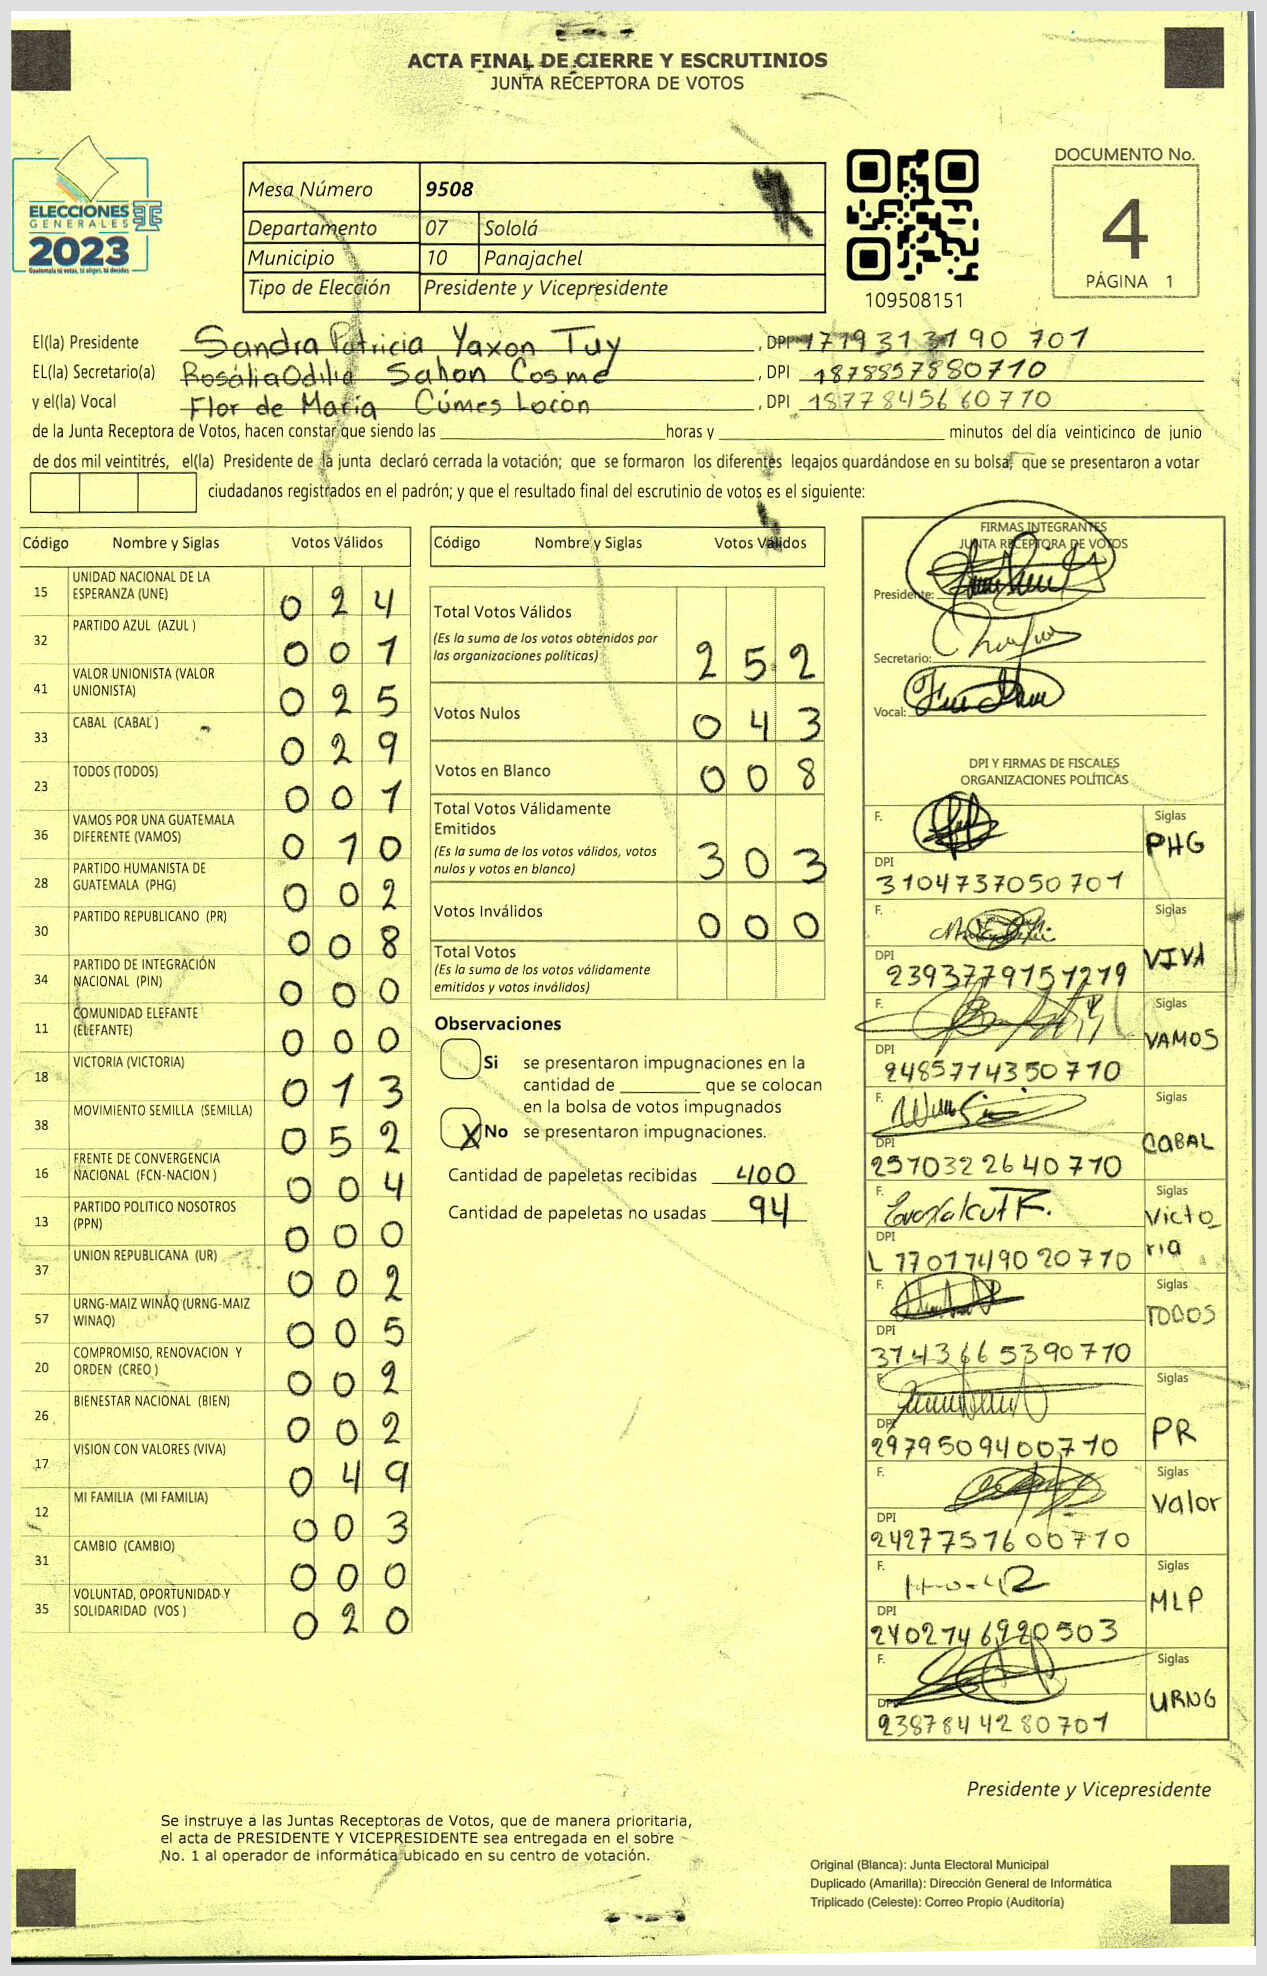 ACTA FINAL DE CIERRE Y ESCRUTINIOS
JUNTA RECEPTORA DE VOTOS
ELECCIONES
GENERALES
2023
Guatemala tú votas, tú eliges, tú decides
Mesa Número 9508
Departamento 07 Sololá
Municipio 10 Panajachel
Tipo de Elección Presidente y Vicepresidente
109508151
DOCUMENTO No.
4
PÁGINA 1
El(la) Presidente Sandra Patricia Yaxon Tuy, DPI 1719313190 701
EL(la) Secretario(a) Rosália Odilia Sahon Cosme, DPI 1878857880710
y el(la) Vocal Flor de Maria Cúmes Locón, DPI 1877845660710
de la Junta Receptora de Votos, hacen constar que siendo las horas y minutos del día veinticinco de junio
de dos mil veintitrés, el(la) Presidente de la junta declaró cerrada la votación; que se formaron los diferentes legajos guardándose en su bolsa, que se presentaron a votar
ciudadanos registrados en el padrón; y que el resultado final del escrutinio de votos es el siguiente:
Código Nombre y Siglas Votos Válidos
15 UNIDAD NACIONAL DE LA ESPERANZA (UNE) 024
32 PARTIDO AZUL (AZUL ) 001
41 VALOR UNIONISTA (VALOR UNIONISTA) 025
33 CABAL (CABAL ) 029
23 TODOS (TODOS) 001
36 VAMOS POR UNA GUATEMALA DIFERENTE (VAMOS) 010
28 PARTIDO HUMANISTA DE GUATEMALA (PHG) 002
30 PARTIDO REPUBLICANO (PR) 008
34 PARTIDO DE INTEGRACIÓN NACIONAL (PIN) 000
11 COMUNIDAD ELEFANTE (ELEFANTE) 000
18 VICTORIA (VICTORIA) 013
38 MOVIMIENTO SEMILLA (SEMILLA) 052
16 FRENTE DE CONVERGENCIA NACIONAL (FCN-NACION ) 004
13 PARTIDO POLITICO NOSOTROS (PPN) 000
37 UNION REPUBLICANA (UR) 002
57 URNG-MAIZ WINAQ (URNG-MAIZ WINAQ) 005
20 COMPROMISO, RENOVACION Y ORDEN (CREO ) 002
26 BIENESTAR NACIONAL (BIEN) 002
17 VISION CON VALORES (VIVA) 049
12 MI FAMILIA (MI FAMILIA) 003
31 CAMBIO (CAMBIO) 000
35 VOLUNTAD, OPORTUNIDAD Y SOLIDARIDAD (VOS ) 020
Código Nombre y Siglas Votos Válidos
Total Votos Válidos
(Es la suma de los votos obtenidos por
las organizaciones políticas) 252
Votos Nulos 043
Votos en Blanco 008
Total Votos Válidamente
Emitidos
(Es la suma de los votos válidos, votos
nulos y votos en blanco) 303
Votos Inválidos 000
Total Votos
(Es la suma de los votos válidamente
emitidos y votos inválidos)
Observaciones
Si se presentaron impugnaciones en la
cantidad de que se colocan
en la bolsa de votos impugnados
X No se presentaron impugnaciones.
Cantidad de papeletas recibidas 400
Cantidad de papeletas no usadas 94
FIRMAS INTEGRANTES
JUNTA RECEPTORA DE VOTOS
Presidente:
Secretario:
Vocal:
DPI Y FIRMAS DE FISCALES
ORGANIZACIONES POLÍTICAS
F. Siglas PHG
DPI 3104737050701
F. Siglas VIVA
DPI 2393779151219
F. Siglas VAMOS
DPI 2485714350710
F. Siglas CABAL
DPI 2570322640710
F. Siglas Victoria
DPI L 1701749020710
F. Siglas TODOS
DPI 3143665390710
F. Siglas PR
DPI 2979509400710
F. Siglas Valor
DPI 2427757600710
F. Siglas MLP
DPI 2402746920503
F. Siglas URNG
DPI 2387844280701
Presidente y Vicepresidente
Se instruye a las Juntas Receptoras de Votos, que de manera prioritaria,
el acta de PRESIDENTE Y VICEPRESIDENTE sea entregada en el sobre
No. 1 al operador de informática ubicado en su centro de votación.
Original (Blanca): Junta Electoral Municipal
Duplicado (Amarilla): Dirección General de Informática
Triplicado (Celeste): Correo Propio (Auditoría)